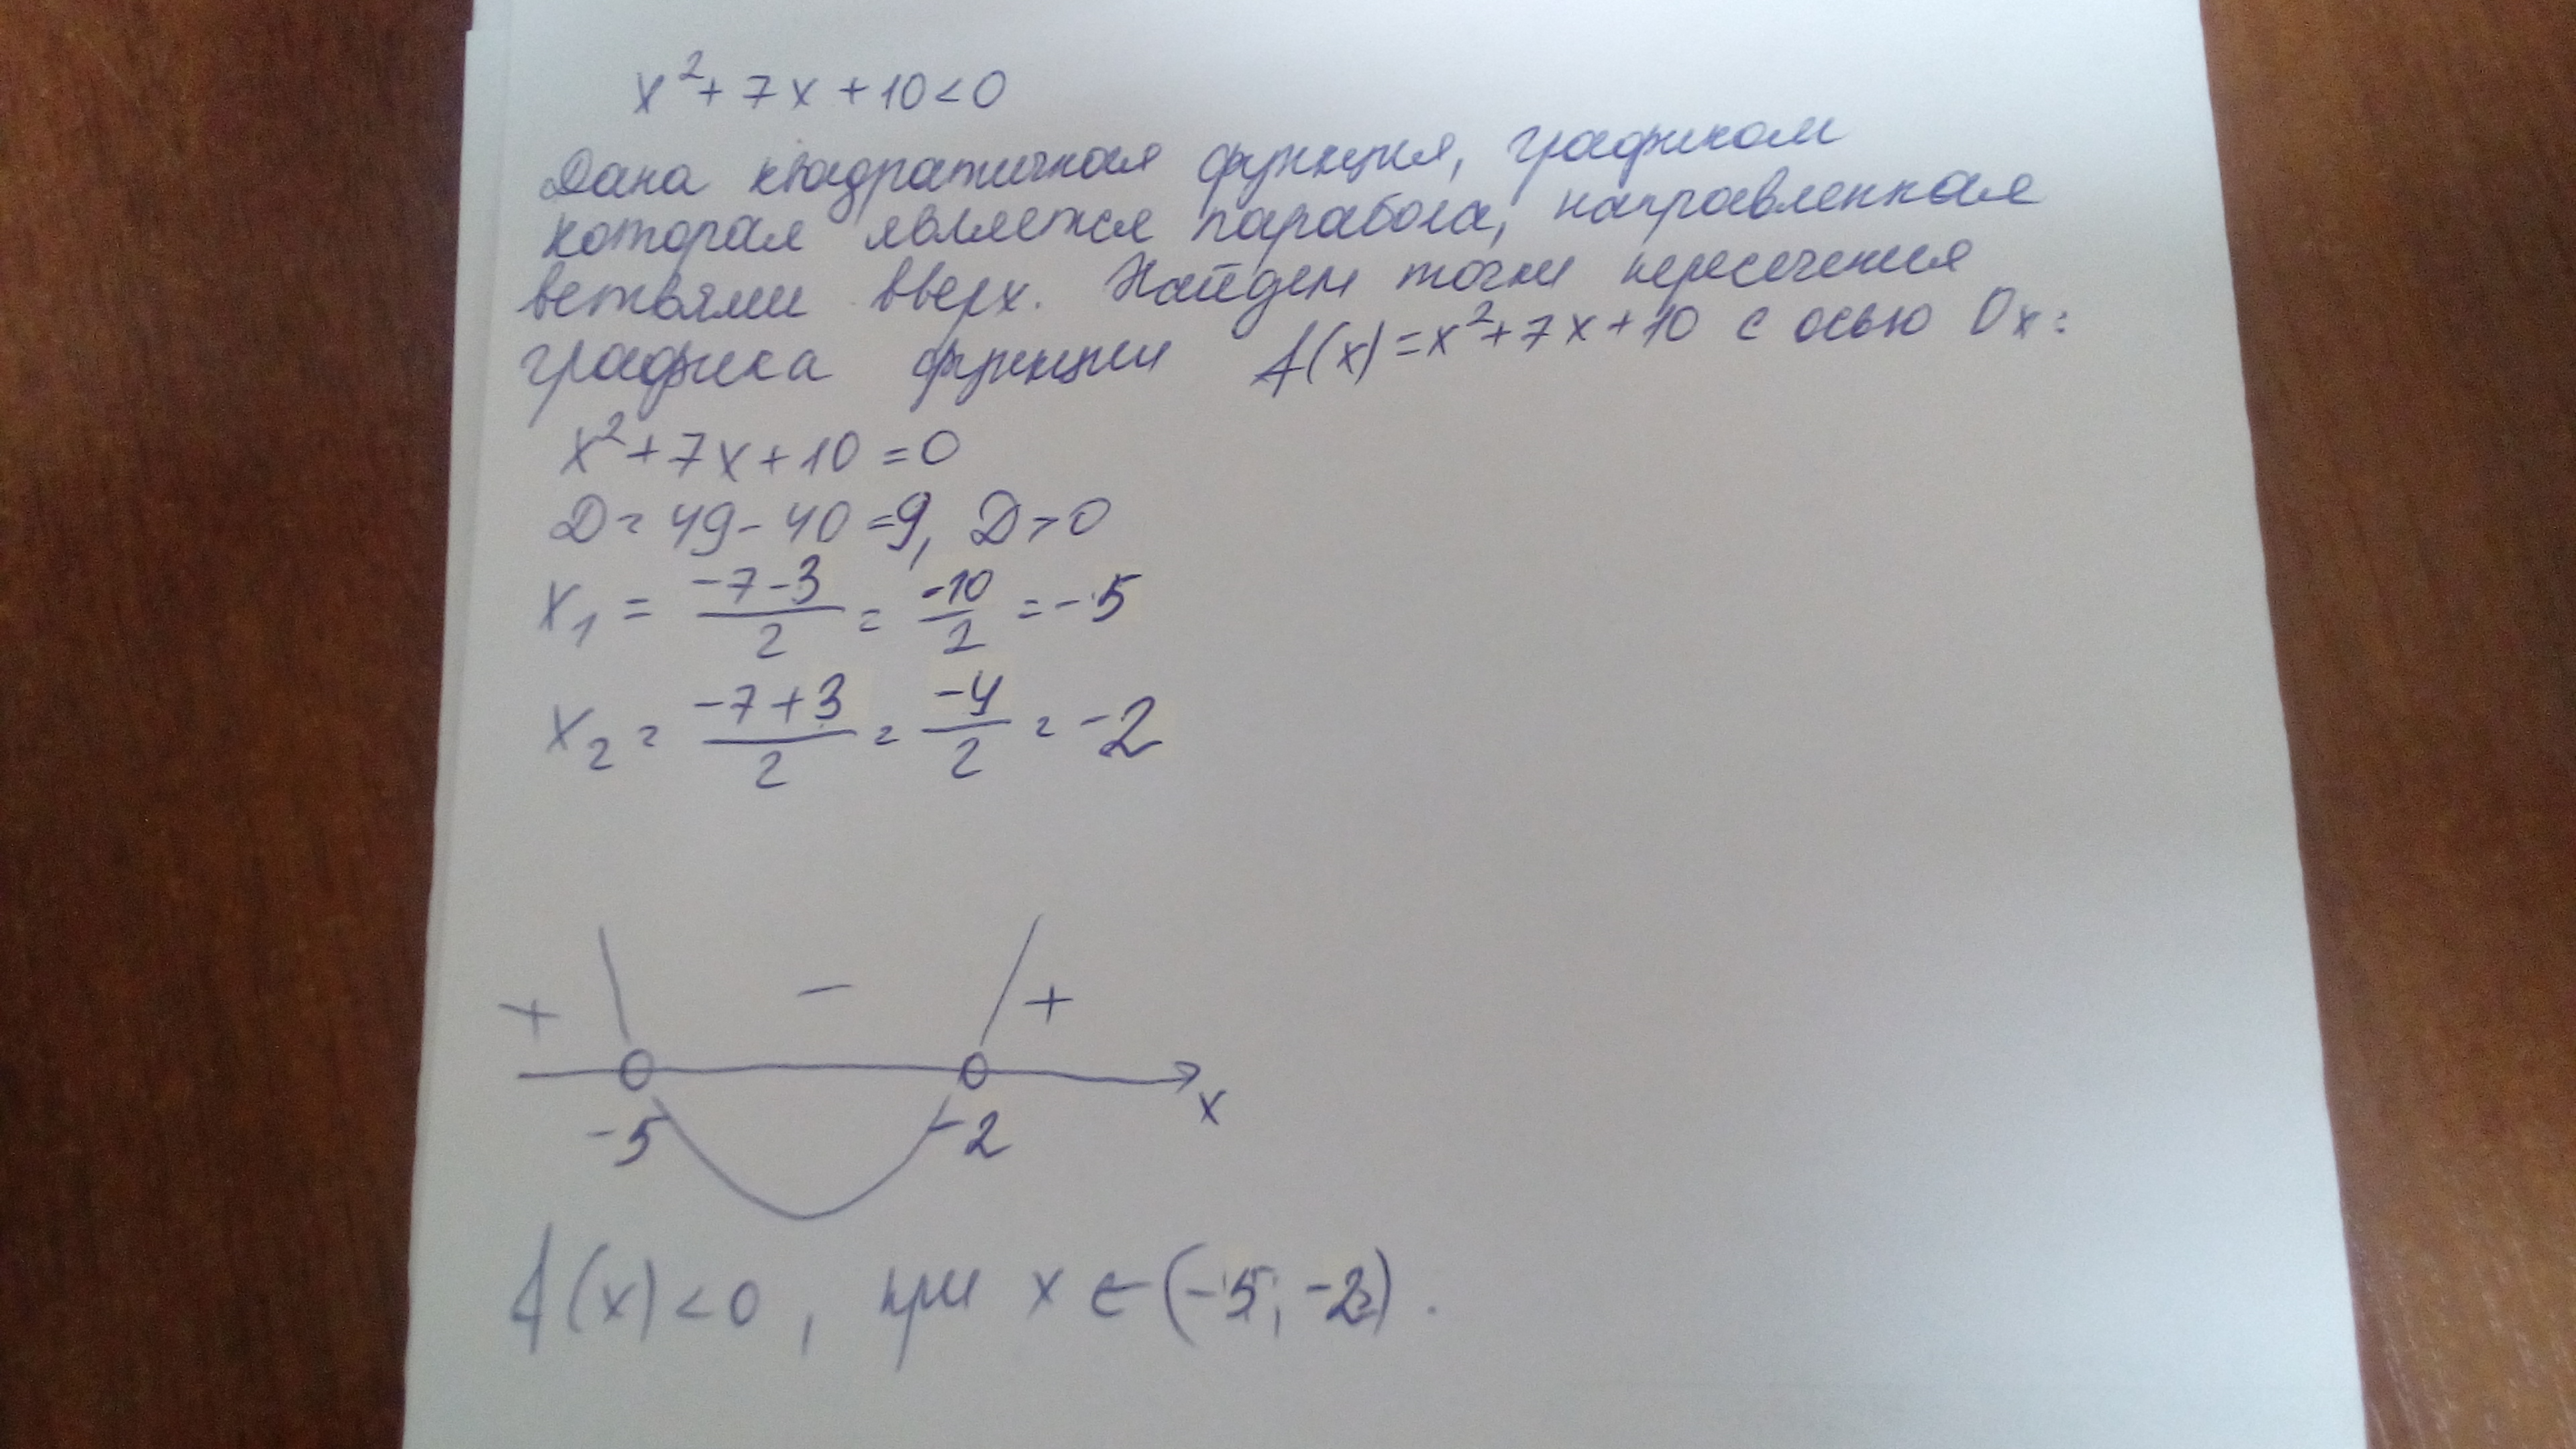 x²+7x+10<0
Дана квадратичная функция, графиком
которая является парабола, направленная
ветвями вверх. Найдем точки пересечения
графика функции f(x)=x²+7x+10 с осью Ox:
x²+7x+10=0
D=49-40=9, D>0
x₁ = (-7-3)/2 = -10/2 = -5
x₂ = (-7+3)/2 = -4/2 = -2
+ − +
-5 -2 x
f(x)<0, при x∈(-5; -2).